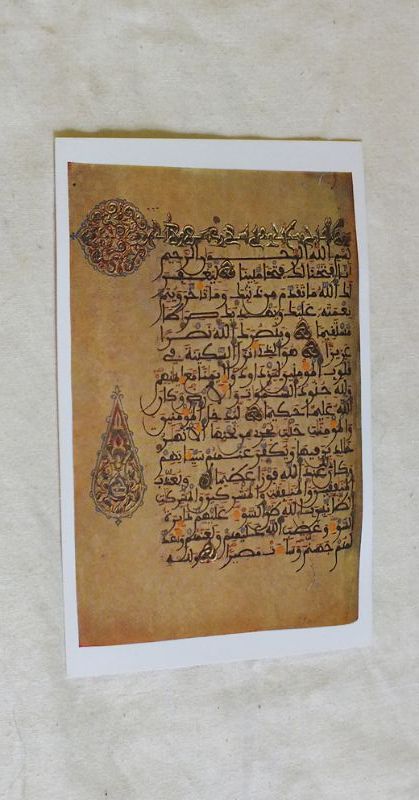 بسم الله الرحمن الرحيم
انا فتحنا لك فتحا مبينا ليغفر
لك الله ما تقدم من ذنبك وما تاخر ويتم
نعمته عليك ويهديك صراطا
مستقيما وينصرك الله نصرا
عزيزا هو الذي انزل السكينة في
قلوب المومنين ليزدادوا ايمنا مع ايمنهم
ولله جنود السموت والارض وكان
الله عليما حكيما ليدخل المومنين
والمومنت جنت تجري من تحتها الانهر
خلدين فيها ويكفر عنهم سياتهم
وكان ذلك عند الله فوزا عظيما ويعذب
المنفقين والمنفقت والمشركين والمشركت
الظانين بالله ظن السوء عليهم دائرة
السوء وغضب الله عليهم ولعنهم واعد
لهم جهنم وساءت مصيرا ولله